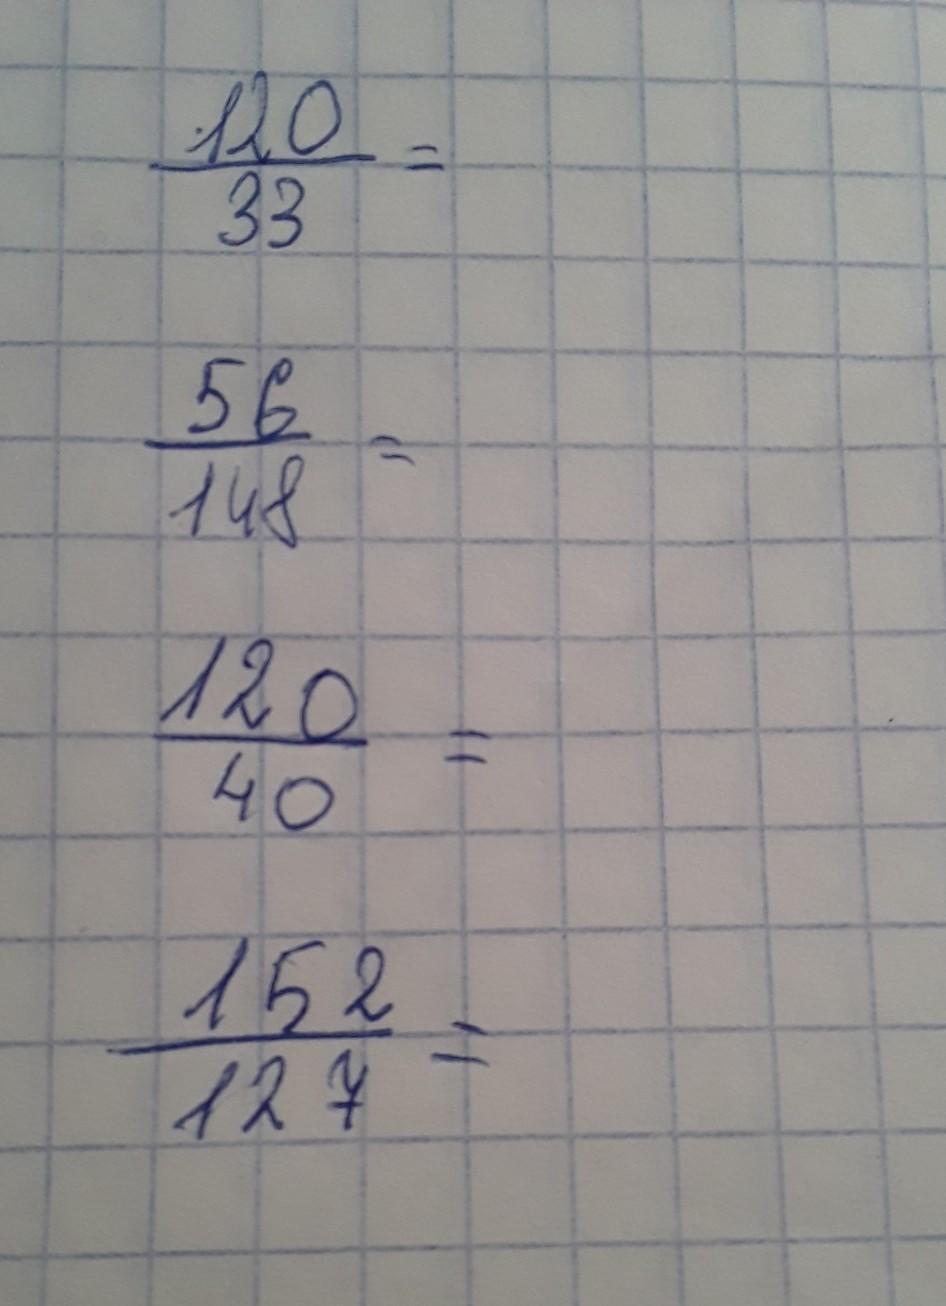 120
33 =
56
148 =
120
40 =
152
127 =